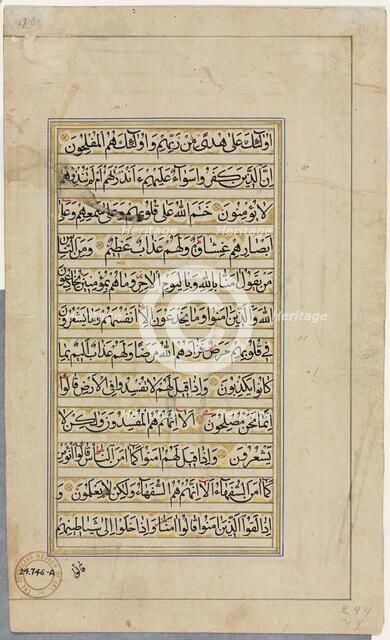 اولئك على هدى من ربهم واولئك هم المفلحون
ان الذين كفروا سوآء عليهم ءانذرتهم ام لم تنذرهم
لا يؤمنون ختم الله على قلوبهم وعلى سمعهم وعلى
ابصارهم غشاوة ولهم عذاب عظيم ومن الناس
من يقول امنا بالله وباليوم الاخر وما هم بمؤمنين يخادعون
الله والذين امنوا وما يخادعون الا انفسهم وما يشعرون
في قلوبهم مرض فزادهم الله مرضا ولهم عذاب اليم بما
كانوا يكذبون واذا قيل لهم لا تفسدوا في الارض قالوا
انما نحن مصلحون الا انهم هم المفسدون ولكن لا
يشعرون واذا قيل لهم امنوا كما امن الناس قالوا انؤمن
كما امن السفهاء الا انهم هم السفهاء ولكن لا يعلمون و
اذا لقوا الذين امنوا قالوا امنا واذا خلوا الى شياطينهم
قالوا
24.746-A
244
heritage
Heritage
Images